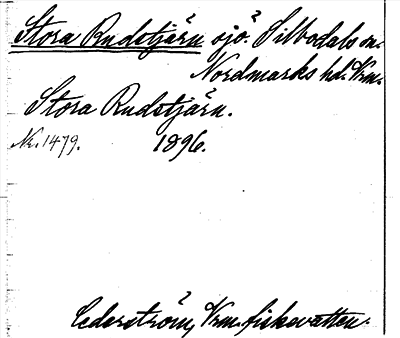 Stora Rudstjärn sjö. Silbodals sn.
Nordmarks hd. Vrm.
Stora Rudstjärn.
Nr. 1479. 1896.
Cederström, Vrm. fiskevatten.